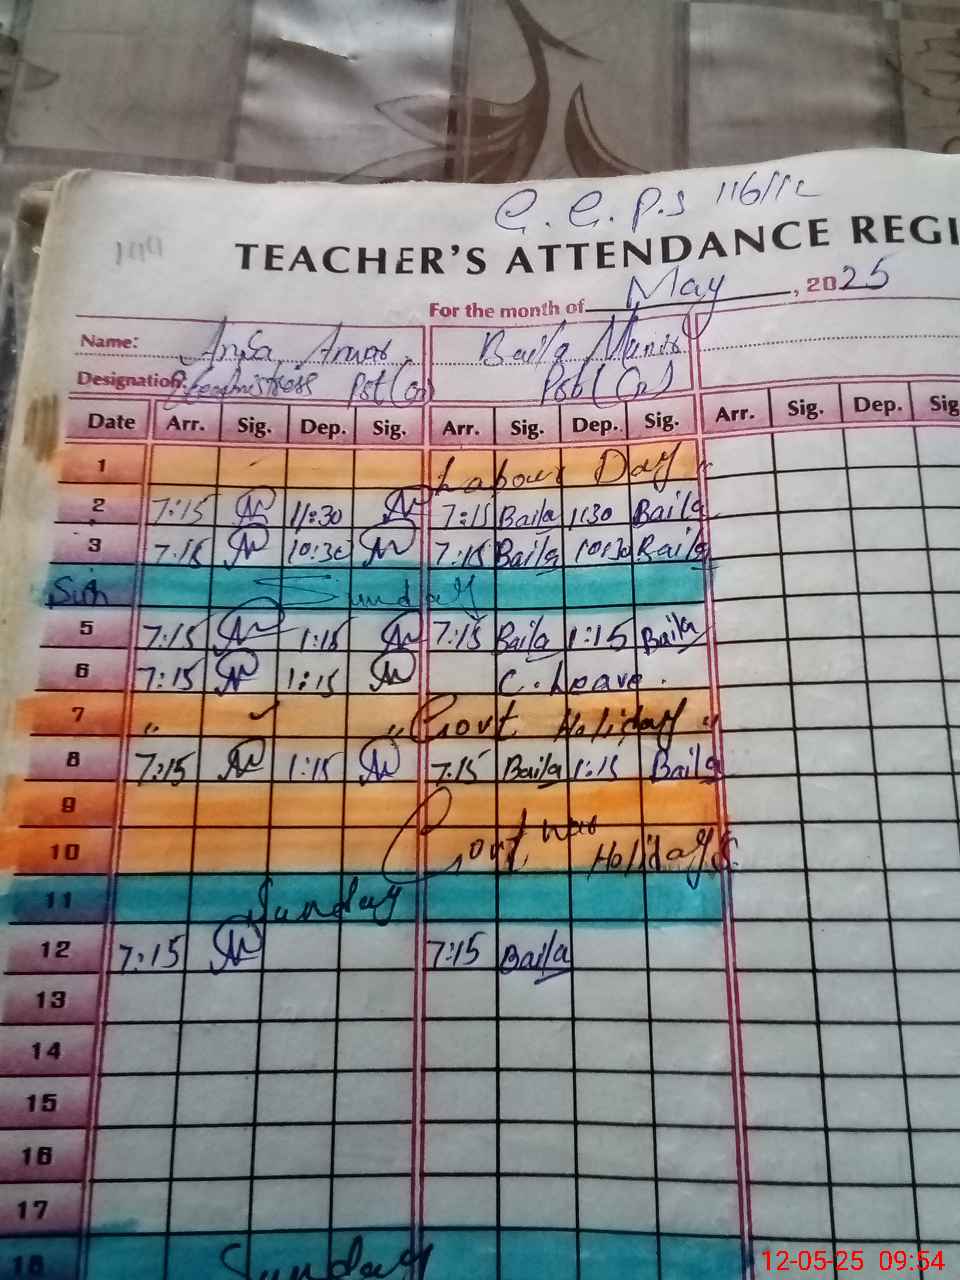 G.G.P.S 116/12
TEACHER'S ATTENDANCE REGI
For the month of May, 2025
Name: Anwar Baila Munir
Designation: Headmistress Pst (On) Pst (On)
Date Arr. Sig. Dep. Sig. Arr. Sig. Dep. Sig. Arr. Sig. Dep. Sig
1 Labour Day "
2 7:15 11:30 7:15 Baila 1130 Baila
3 7:15 10:30 7:15 Baila 10:30 Baila
Sun Sunday
5 7:15 1:15 7:15 Baila 1:15 Baila
6 7:15 1:15 C. Leave.
7 " " Govt Holiday "
8 7:15 1:15 7:15 Baila 1:15 Baila
9
10 Govt war Holidays
11 Sunday
12 7:15 7:15 Baila
13
14
15
16
17
18 Sunday
12-05-25 09:54